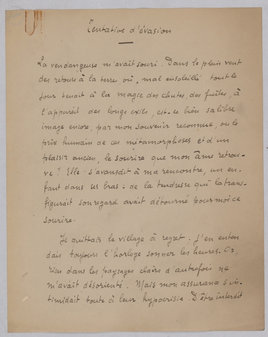 Tentative d'évasion
La vendangeuse m'avait souri. Dans le plein vent
des retours à la terre où, mal ensoleillé tout le
jour tenait à la magie des chutes, des fuites, à
l'apparat des longs exils, est-ce bien sa libre
image encore, par mon souvenir reconnue, ou le
très humain de ces métamorphoses et d'un
plaisir ancien, le sourire que mon âme retrou-
ve ? Elle s'avançait à ma rencontre, un en-
fant dans les bras. de la tendresse qui la trans-
figurait son regard avait détourné pour moi ce
sourire.
Je quittais le village à regret. J'en enten-
dais toujours l'horloge sonner les heures. Or,
rien dans les paysages chers d'autrefois ne
m'avait désorienté. Mais mon assurance s'in-
timidait toute à leur hypocrisie. D'être interdit